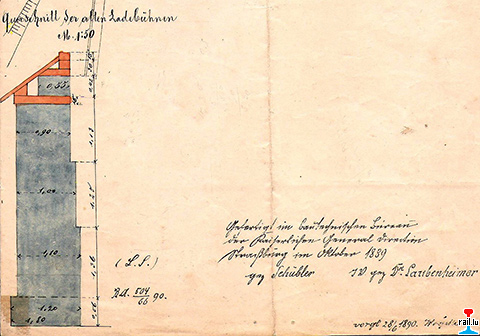 Querschnitt der alten Ladebühnen
M. 1:50
0,55
0,90
1,00
1,10
1,20
1,50
(L.S.)
BII. 504/66 90.
Gefertigt im bautechnischen Büreau
der Kaiserlichen General Direction
Strassburg im Oktober 1889
gez Schübler IV gez Dr. Laubenheimer
vorgl. 28/ 1890.
rail.lu